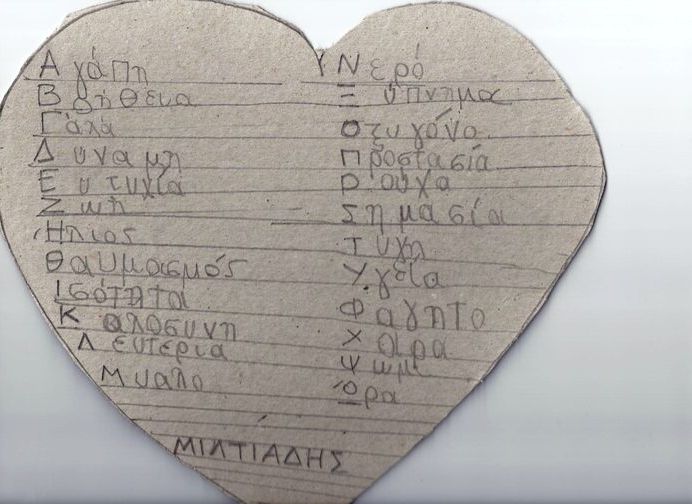 Αγάπη
Βοήθεια
Γάλα
Δυναμη
Ευτυχία
Ζωη
Ηλιος
Θαυμασμός
Ισότητα
Καλοσυνη
Λευτερια
Μυαλο
Νερό
Ξύπνημα
Οξυγόνο
Προστασία
Ρούχα
Σημασία
Τυχη
Υγεία
Φαγητο
Χαρα
Ψωμί
Ώρα
ΜΙΛΤΙΑΔΗΣ